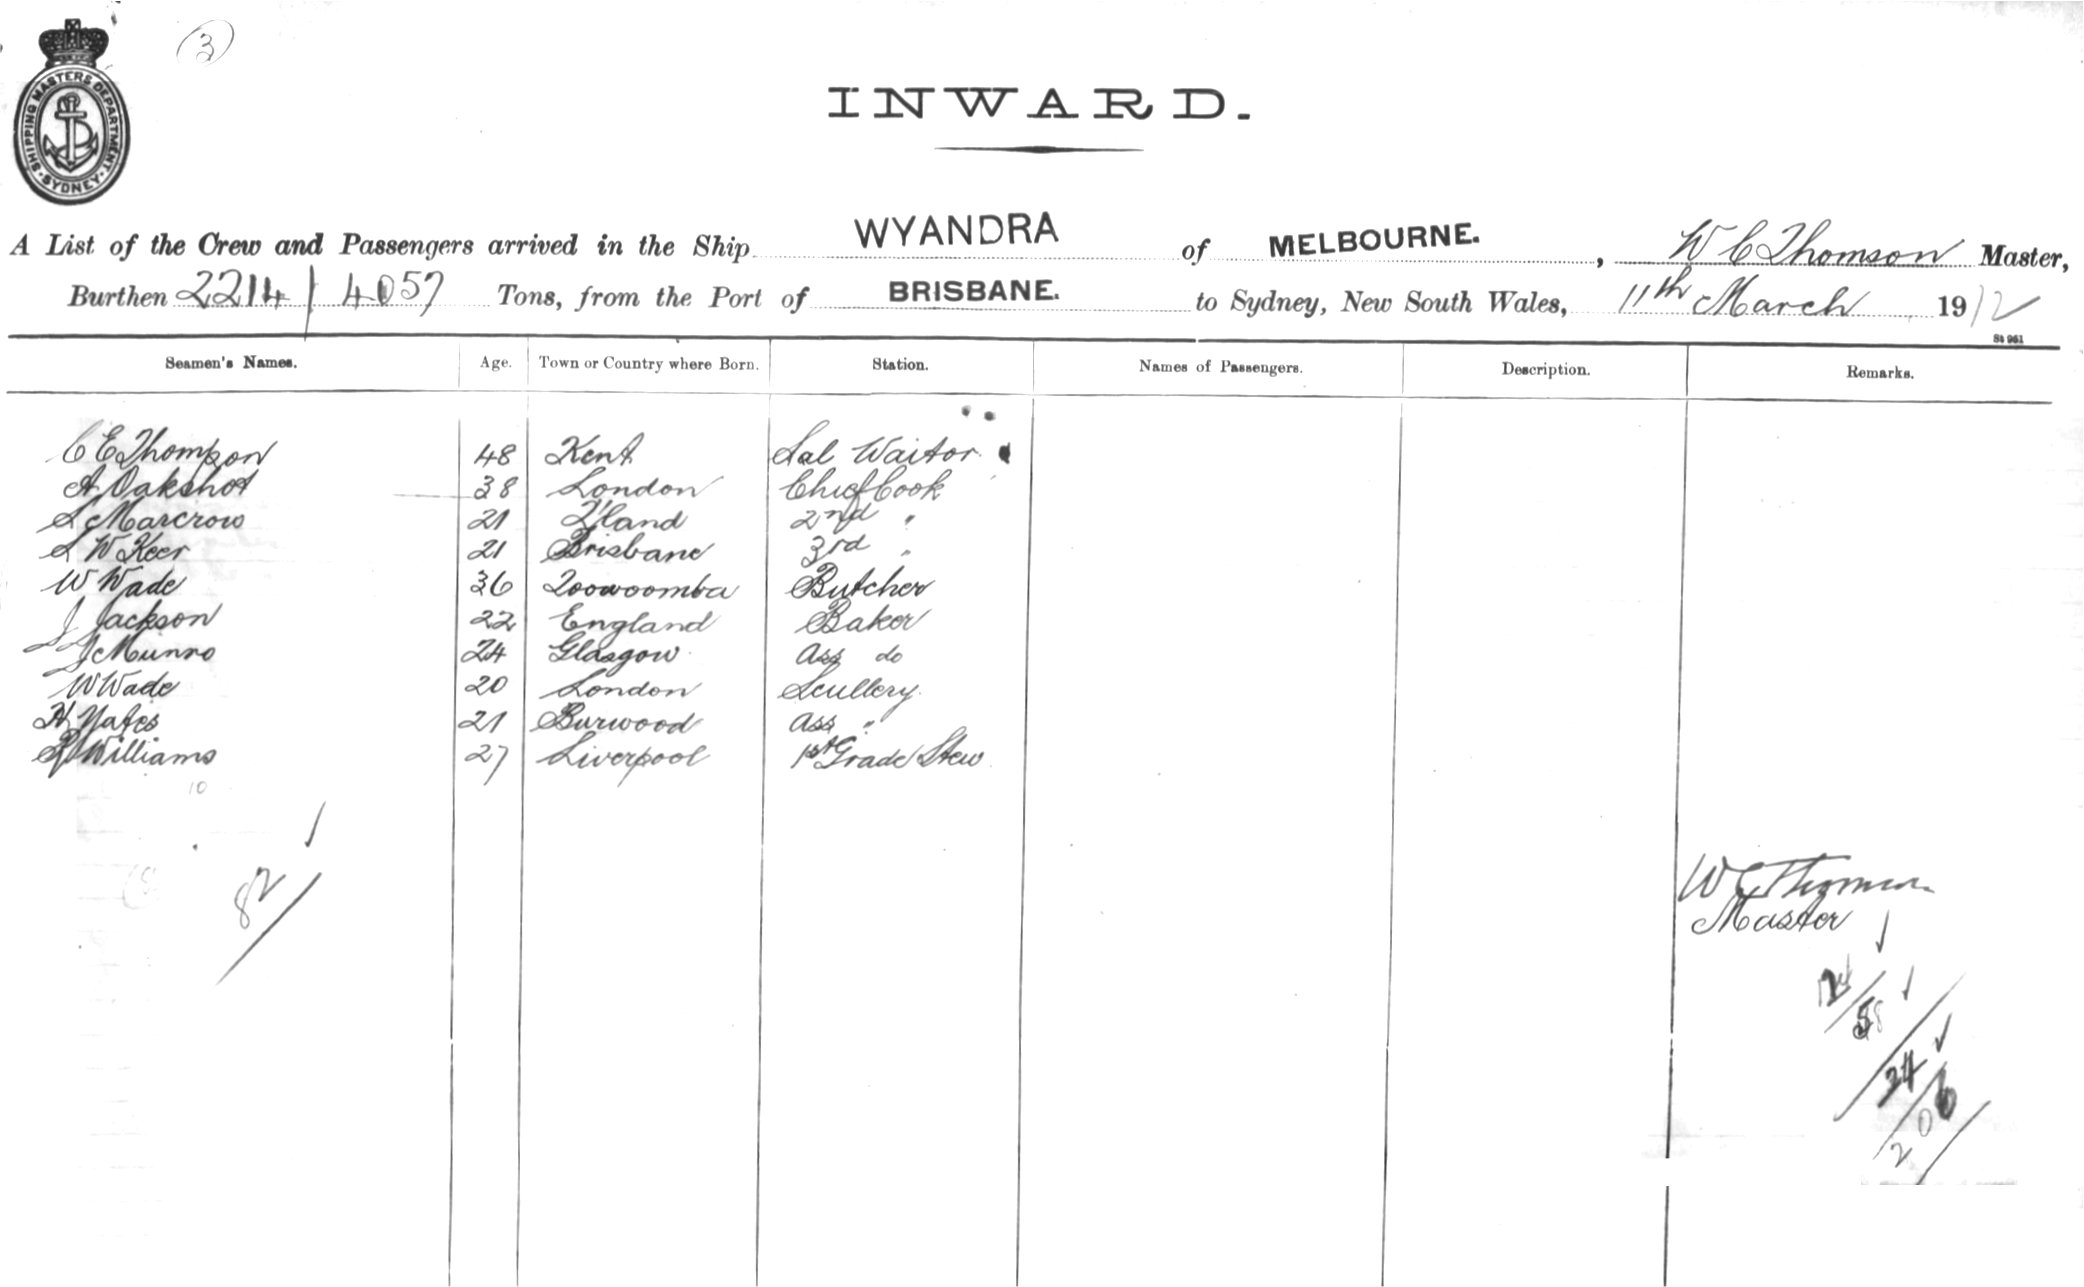 (3)
SHIPPING MASTERS DEPARTMENT. SYDNEY.
INWARD.
A List of the Crew and Passengers arrived in the Ship WYANDRA of MELBOURNE. , W C Thomson Master,
Burthen 2214 / 4057 Tons, from the Port of BRISBANE. to Sydney, New South Wales, 11th March 1912
St 961
Seamen's Names. Age. Town or Country where Born. Station. Names of Passengers. Description. Remarks.
C E Thompson 48 Kent Sal Waitor
A Oakshot 38 London Chief Cook
S Marcrow 21 Q'land 2nd "
S W Keer 21 Brisbane 3rd "
W Wade 36 Toowoomba Butcher
J Jackson 22 England Baker
J Munro 24 Glasgow Ass do
W Wade 20 London Scullery
H Yates 21 Burwood Ass "
Williams 27 Liverpool 1st Grade Stew
10
82
W C Thomson
Master
58
24
206